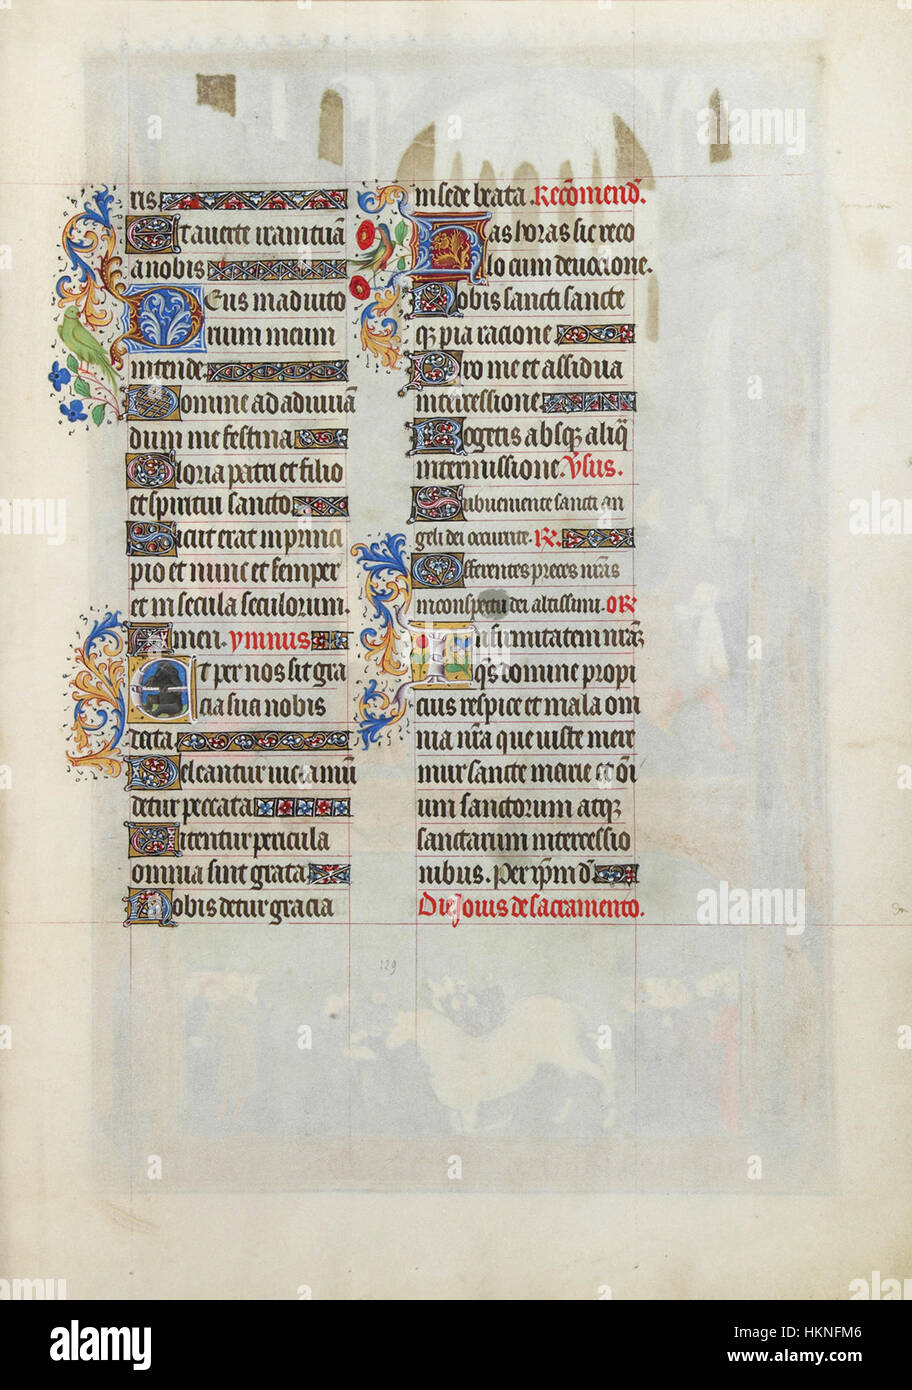 ris
Et averte iram tuā
a nobis
Deus in adiuto
rium meum
intende
Domine ad adiuvā
dum me festina
Gloria patri et filio
et spiritui sancto
Sicut erat in princi
pio et nunc et semper
et in secula seculorum.
Amen. ymnus
Et per nos sit gra
cia sui nobis
tata
Deleantur
detur peccata
Citentur pericula
omnia sint grata
Nobis detur gracia
in sede beata. Recōmend̄.
Has horas sic reco
lo cum devocione.
Nobis sancti sancte
q̄ pia racione
Pro me et assidua
intercessione
Rogetis absq̄ aliq̄
intermissione. Vsus.
Subvenite sancti an
geli dei occurrite. R.
Offerentes preces nr̄as
in conspectu dei altissimi. OR
Infirmitatem nr̄ā
q̄s domine propi
cius respice et mala om
nia nr̄a que iuste mere
mur sancte marie et ōi
um sanctorum atq̄
sanctarum intercessio
nibus. Per ip̄m d̄.
Die Jovis de sacramento.
129
alamy
Image ID: HKNFM6
www.alamy.com